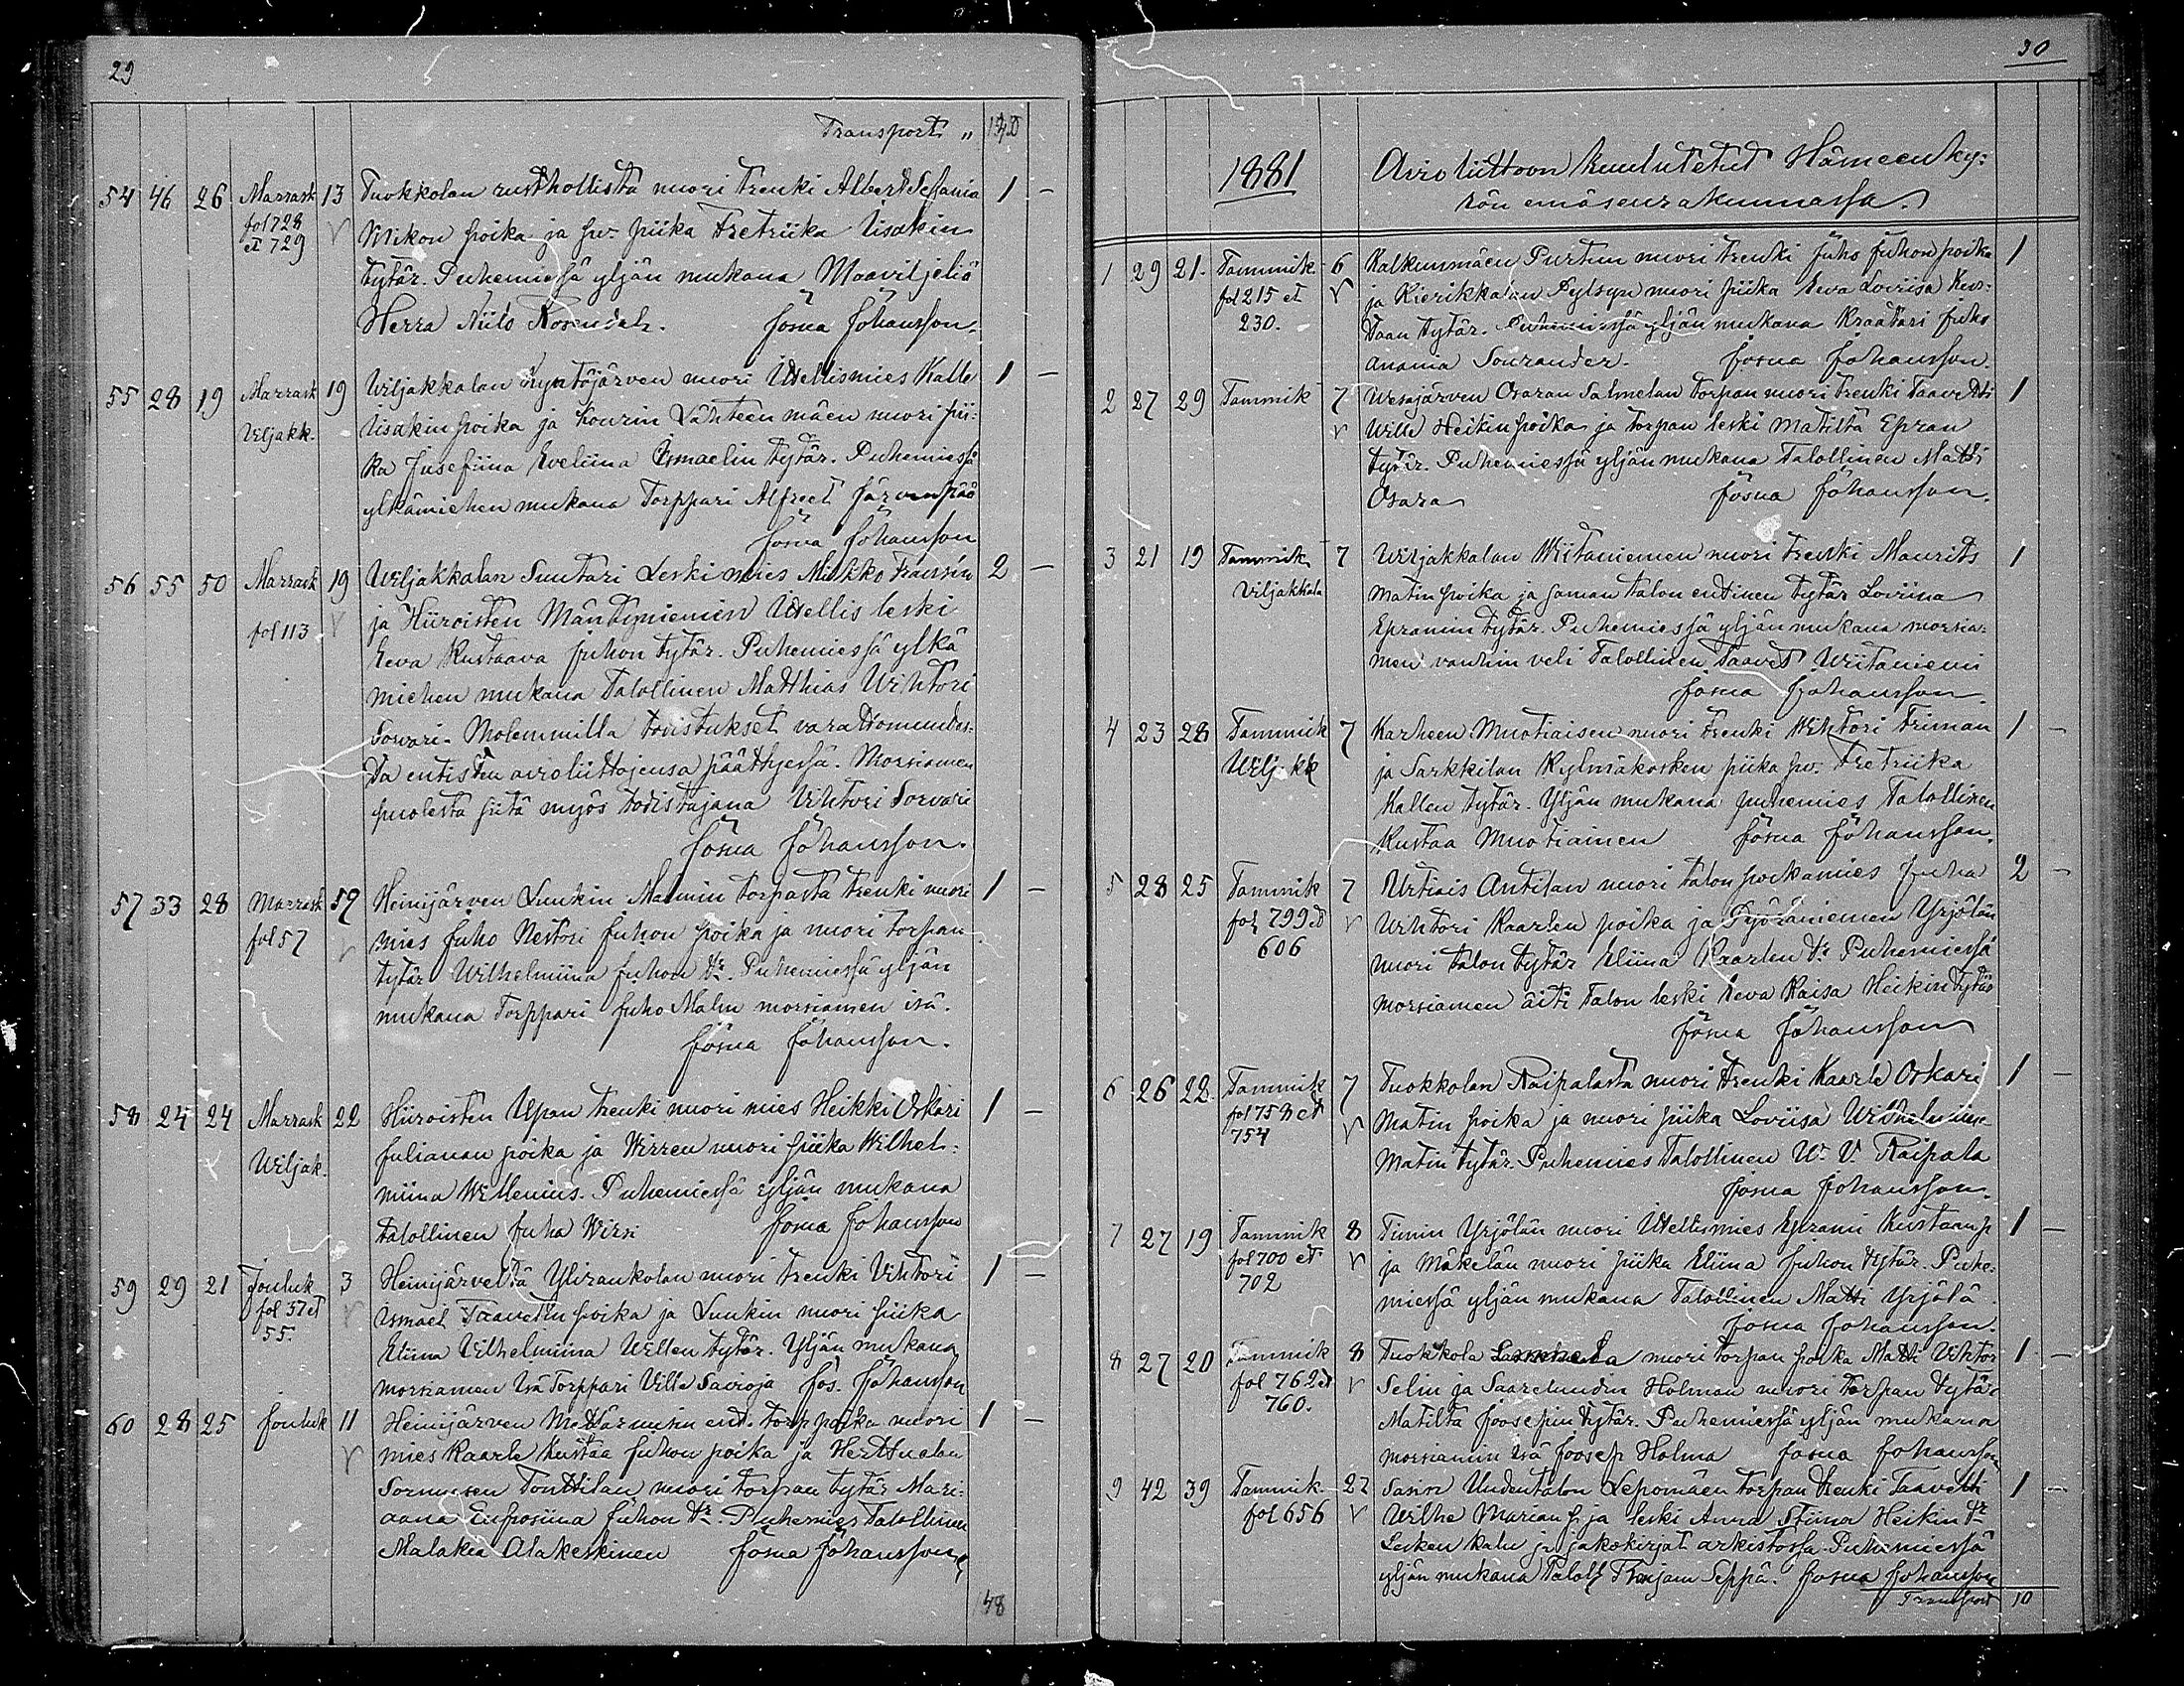 29
Transport " 140
54 46 26 Marrask 13 Tuokkolan rusthollista nuori trenki Albert Sefania 1 —
fol 728 Mikon poika ja hw. piika Fretriika Iisakin
et 729 tytär. Puhemiessä yljän mukana Maaviljeliä
Herra Niilo Rosendal. Josua Johansson.
55 28 19 Marrask 19 Wiljakkalan Inyntöjärven nuori Itellismies Kalle 1 —
Viljakk. Iisakin poika ja Kourin Lähteenmäen nuori pii:
ka Jusefiina Eveliina Ismaelin tytär. Puhemiessä
ylkämiehen mukana Torppari Alfred Järvenpää
Josua Johansson
56 55 50 Marrask 19 Wiljakkalan Suutari Leskimies Mikko Fransin 2 —
fol 113 ja Hiiroisten Mäntyniemin Itellis leski
Eeva Kustaava Juhon tytär. Puhemiessä ylkä
miehen mukana Talollinen Matthias Wihtori
Sorvari. Molemmilla todistukset varattomuudes:
ta entisten avioliittojensa päättyessä. Morsiamen
puolesta siitä myös todistajana Vihtori Sorvari
Josua Johansson.
57 33 28 Marrask 59 Heinijärven Luukin Malmin torpasta trenki nuori 1 —
fol 57 mies Juho Nestori Juhon poika ja nuori torpan
tytär Wilhelmiina Juhon tr. Puhemiessä yljän
mukana Torppari Juho Malm morsiamen isä.
Josua Johansson.
58 24 24 Marrask 22 Hiiroisten Upan trenki nuori mies Heikki Oskari 1 —
Viljak. Julianan poika ja Wirren nuori piika Wilhel:
miina Wellenius. Puhemiessä yljän mukana
talollinen Juha Wirri Josua Johansson
59 29 21 Jouluk 3 Heinijärveltä Yliraukolan nuori trenki Vihtori 1 —
fol 37 et Ismael Taavetin poika ja Luukin nuori piika
55. Eliina Vilhelmiina Willen tytär. Yljän mukana
morsiamen isä Torppari Ville Savioja Jos. Johansson
60 28 25 Jouluk 11 Heinijärven Mettärnisin ent. torp poika nuori 1 —
mies Kaarle Kustaa Juhon poika ja Herttualan
Sornuisen Tonttilan nuori torpan tytär Mari:
aana Eufrosiina Juhon tr. Puhemies Talollinen
Malakia Alakeskinen Josua Johansson
148
30
1881 Avioliittoon kuulutetut Hämeenky:
rön emäseurakunnassa.
1 29 21. Tammik 6 Kalkunmäen Purtun nuori trenki Juho Juhon poika 1
fol 215 et ja Kierikkalan Pylsyn nuori piika Eeva Loviisa Kus:
230. taan tytär. Puhemiessä yljän mukana Kraatari Juho
Anania Sourander. Josua Johansson.
2 27 29 Tammik 7 Wesajärven Osaran Salmelan torpan nuori trenki Taavetti 1
Wille Heikin poika ja torpan leski Matilta Epran
tytär. Puhemiessä yljän mukana Talollinen Matti
Osara Josua Johansson.
3 21 19 Tammik 7 Wiljakkalan Wiitaniemen nuori trenki Maurits 1
Viljakkala Matin poika ja saman talon entinen tytär Loviina
Epramin tytär. Puhemiessä yljän mukana morsia:
men vanhin veli Talollinen Taavet Wiitaniemi
Josua Johansson
4 23 28 Tammik 7 Karheen Muotiaisen nuori trenki Wihtori Friman 1 —
Viljakk ja Sarkkilan Kylmäkosken piika hw. Fretriika
Kallen tytär. Yljän mukana puhemies Talollinen
Kustaa Muotiainen Josua Johansson.
5 28 25 Tammik 7 Urtiais Antilan nuori talon poikamies Juha 2 —
fol 799 et Vihtori Kaarlen poika ja Pyöräniemen Yrjölän
606 nuori talon tytär Eliina Kaarlen tr. Puhemiessä
morsiamen äiti Talon leski Eeva Kaisa Heikin tytär
Josua Johansson
6 26 22. Tammik 7 Tuokkolan Raipalasta nuori trenki Kaarle Oskari 1 —
fol 758 et Matin poika ja nuori piika Loviisa Wilhelmiina
754 Matin tytär. Puhemies Talollinen W. V. Raipala
Josua Johansson.
7 27 19 Tammik 8 Timin Yrjölän nuori Itellismies Eprami Kustaan p 1 —
fol 700 et ja Mäkelän nuori piika Eliina Juhon tytär. Puhe:
702 miessä yljän mukana Talollinen Matti Yrjölä
Josua Johansson.
8 27 20 Tammik 8 Tuokkola nuori torpan poika Matti Vihtor 1 —
fol 762 et Selin ja Saarelundin Holman nuori torpan tytär
760. Matilta Joosepin tytär. Puhemiessä yljän mukana
morsiamin isä Joosep Holma Josua Johansson
9 42 39 Tammik 22 Sasin Uudentalon Lepomäen torpan trenki Taavetti 1 —
fol 656 Wilhe Marian p. ja leski Anna Stiina Heikin tr
Lesken kalu ja jakokirjat arkistossa. Puhemiessä
yljän mukana Taloll Franjam Seppä. Josua Johansson
Transport 10